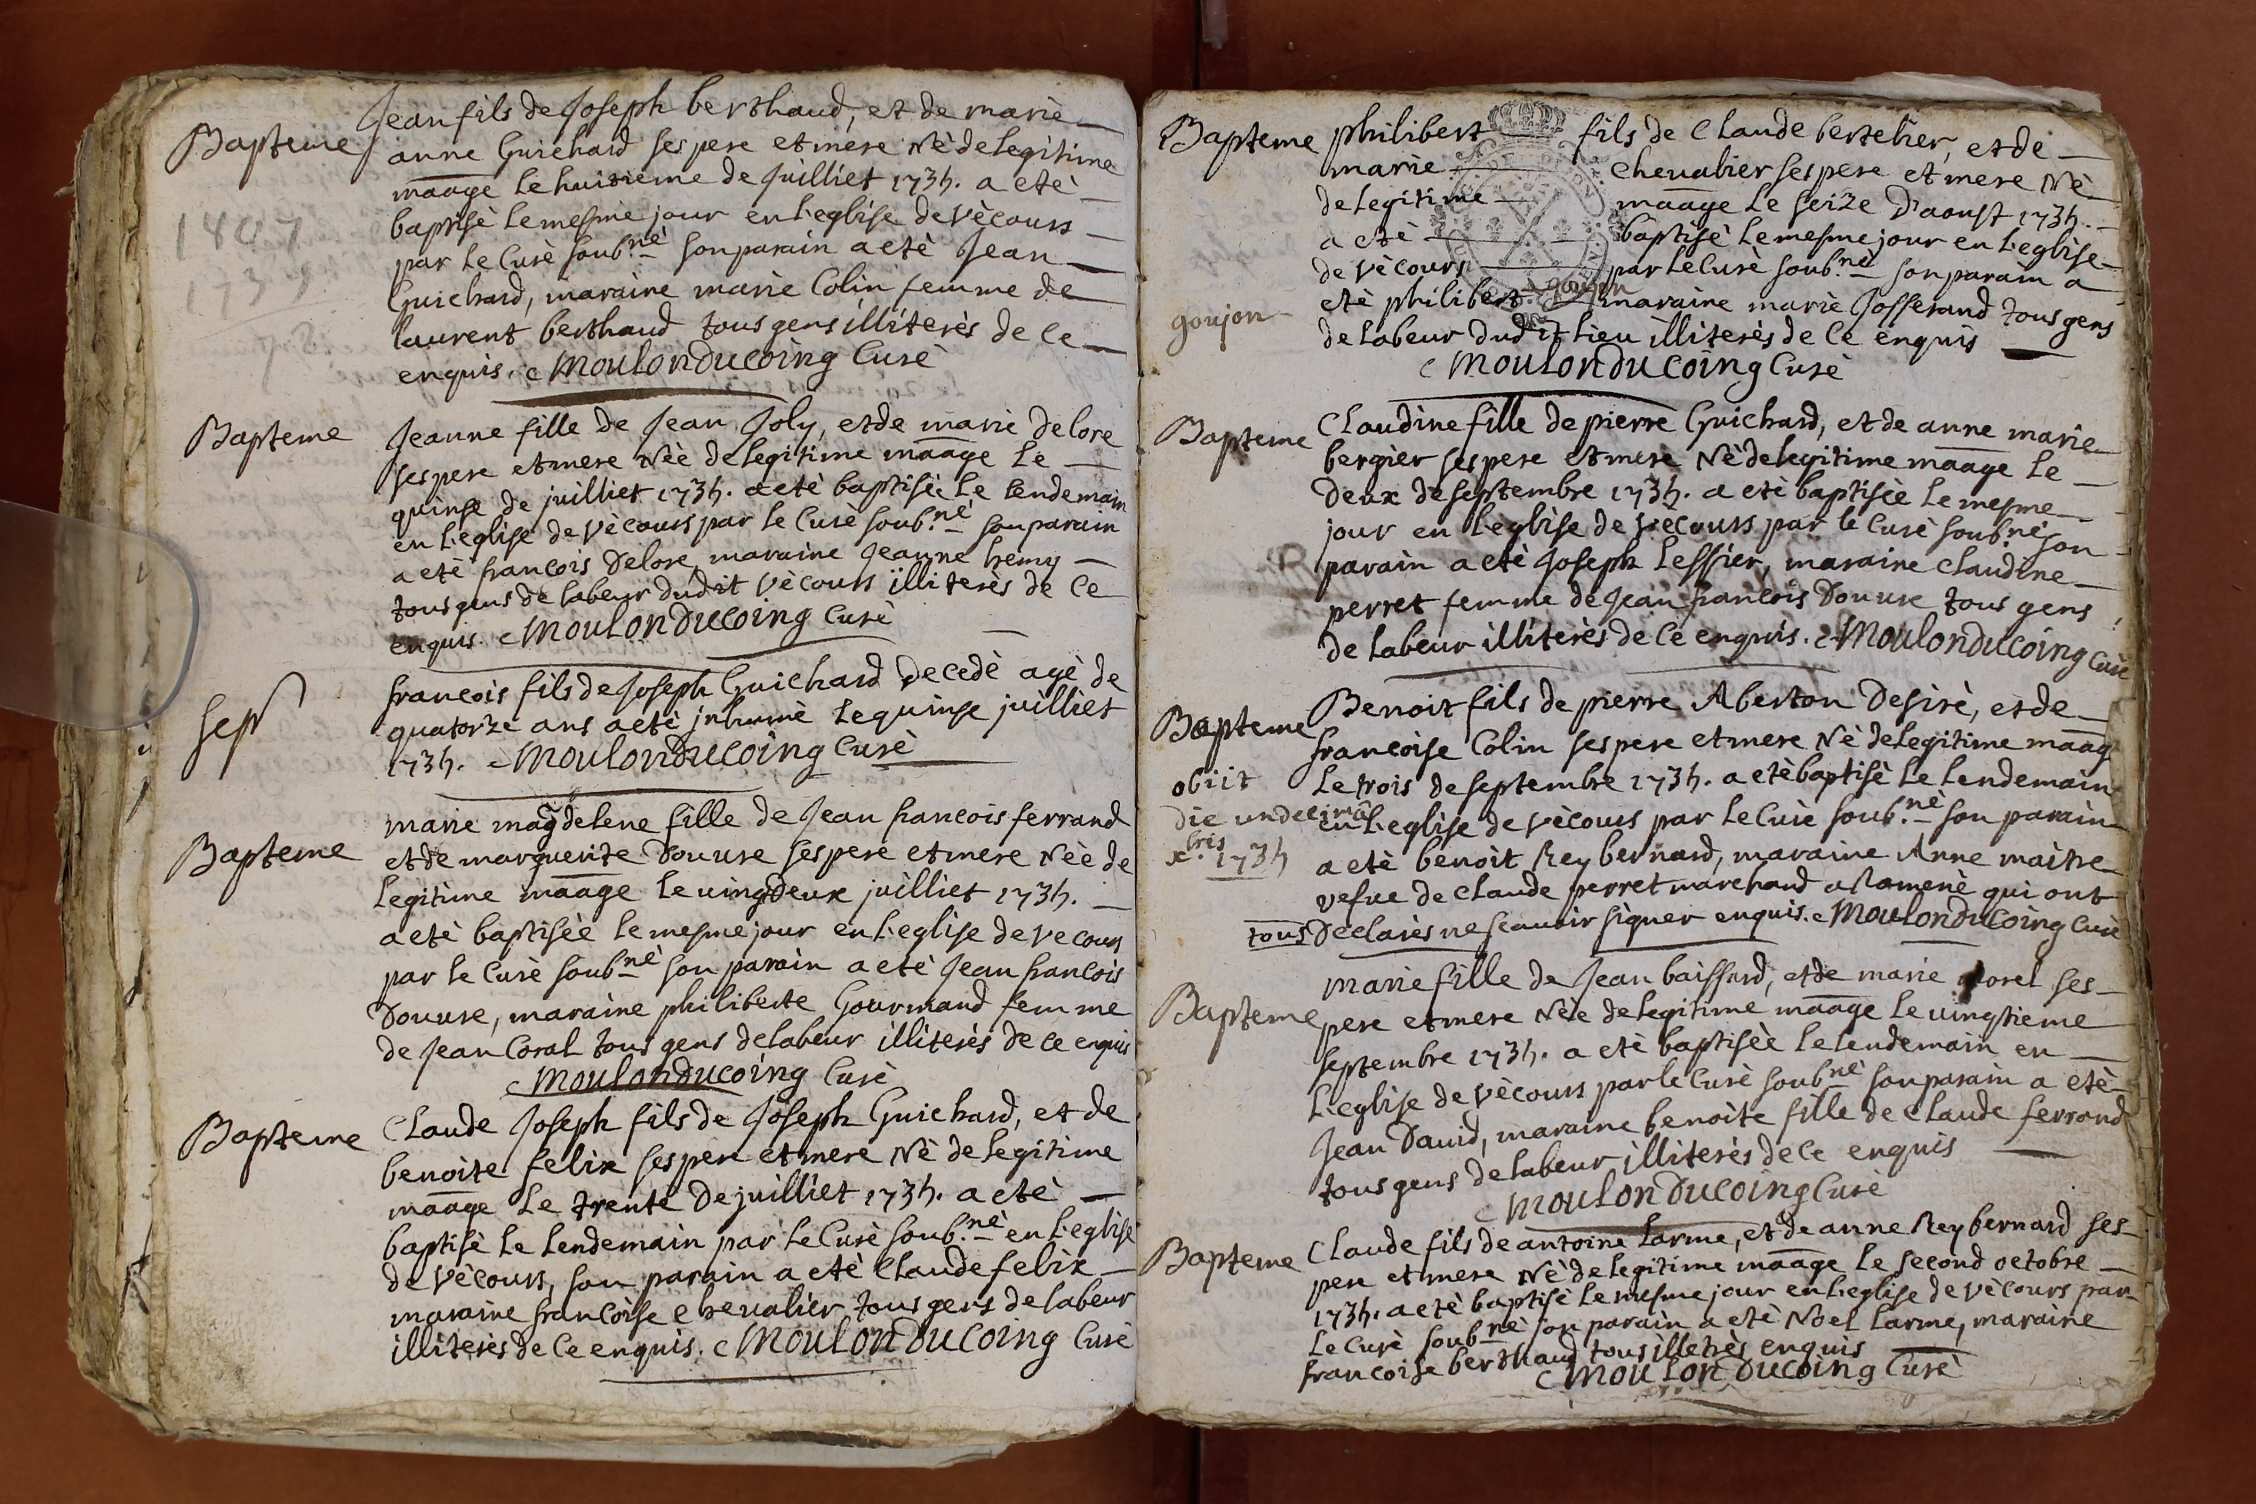 Bapteme
Jean fils de Joseph berthaud, et de marie
anne Guichard ses pere et mere Nè de legitime
maage le huitieme de Juilliet 1734. a etè
baptisè le mesme jour en l'eglise de vècours
par le Curè soub.nè son parain a etè Jean
Guichard, maraine marie Colin femme de
laurent berthaud tous gens illiterès de ce
enquis. Moulonducoing Curè
1407
1739
Bapteme
Jeanne fille de Jean Joly, et de marie Delore
ses pere et mere Nèe de legitime maage le
quinse de juilliet 1734. a etè baptisèe le lendemain
en l'eglise de vècours par le Curè soub.nè son parain
a etè francois Delore, maraine Jeanne hemy
tous gens de labeur dudit vècours illiterès de ce
enquis. Moulonducoing Curè
sep
francois fils de Joseph Guichard decedè agè de
quatorze ans a etè inhumè le quinse juilliet
1734. Moulonducoing Curè
Bapteme
marie magdelene fille de Jean francois ferrand
et de marguerite Douure ses pere et mere Nèe de
legitime maage le uingdeux juilliet 1734.
a etè baptisèe le mesme jour en l'eglise de vecours
par le Curè soubnè son parain a etè Jean francois
Douure, maraine philiberte Gourmand femme
de Jean Coral tous gens de labeur illiterès de ce enquis
Moulonducoing Curè
Bapteme
Claude Joseph fils de Joseph Guichard, et de
benoite felix ses pere et mere Nè de legitime
maage le trente de juilliet 1734. a etè
baptisè le lendemain par le Curè soub.nè en l'eglise
de vècours, son parain a etè Claude felix
maraine francoise chevalier tous gens de labeur
illiterès de ce enquis. Moulonducoing Curè
Bapteme
philibert fils de Claude bertelier, et de
marie chevalier ses pere et mere Nè
de legitime maage le seize d'aoust 1734.
a etè baptisè le mesme jour en l'eglise
de vècours par le Curè soub.nè son parain a
etè philibert goujon maraine marie Josserand tous gens
goujon
de labeur dudit lieu illiterès de ce enquis
Moulonducoing Curè
Bapteme
Claudine fille de pierre Guichard, et de anne marie
bergier ses pere et mere Nè de legitime maage le
deux de septembre 1734. a etè baptisèe le mesme
jour en l'eglise de vecours par le Curè soub.nè son
parain a etè Joseph Lessier, maraine Claudine
perret femme de Jean francois Douure tous gens
de labeur illiterès de ce enquis. Moulonducoing Curè
Bapteme
Benoit fils de pierre Aberton Desirè, et de
francoise Colin ses pere et mere Nè de legitime maag
obiit
le trois de septembre 1734. a etè baptisè le lendemain
die undecimâ
en l'eglise de vècours par le Curè soub.nè son parain
xbris 1734
a etè benoit Reybernard, maraine Anne maitre
vefue de Claude perret marchand a Romenè qui ont
tous declarès ne scauoir signer enquis. Moulonducoing Curè
Bapteme
marie fille de Jean baissard, et de marie morel ses
pere et mere Nèe de legitime maage le uingtieme
septembre 1734. a etè baptisèe le lendemain en
l'eglise de vècours par le Curè soubnè son parain a etè
Jean David, maraine benoite fille de Claude ferrand
tous gens de labeur illiterès de ce enquis
Moulonducoing Curè
Bapteme
Claude fils de antoine Larme, et de anne Reybernard ses
pere et mere Nè de legitime maage le second octobre
1734. a etè baptisè le mesme jour en l'eglise de vècours par
le Curè soub.nè son parain a etè Noel Larme, maraine
francoise berthaud tous illetrès enquis
Moulonducoing Curè